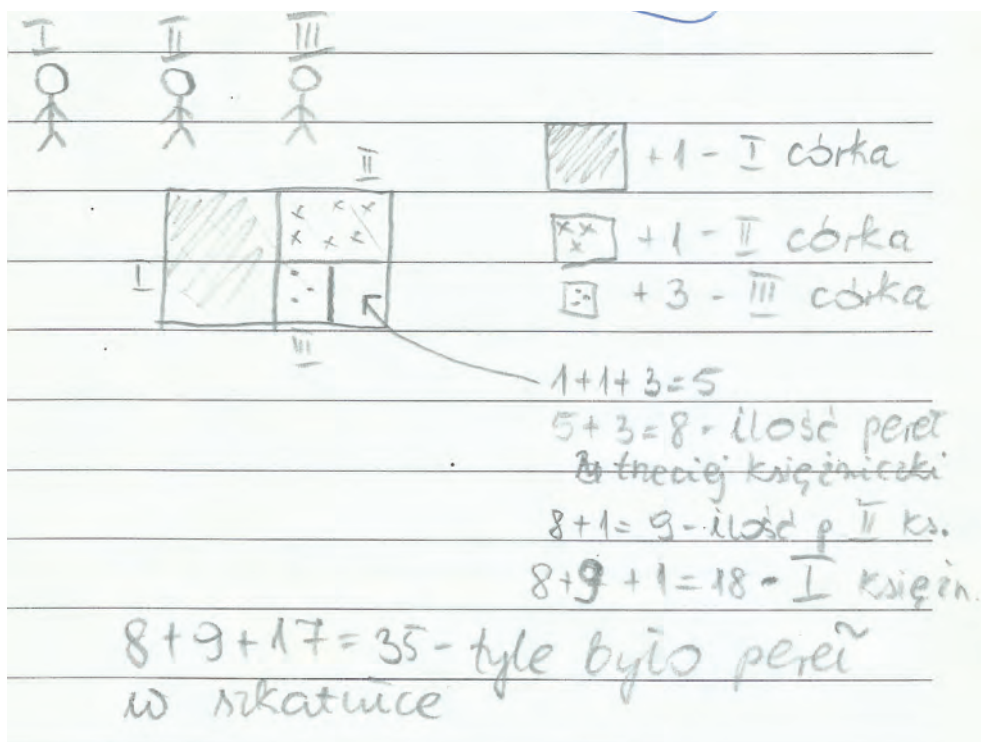 I II III
II
+1 - I córka
+1 - II córka
I
+3 - III córka
III
1+1+3=5
5+3=8 - ilość pereł
trzeciej księżniczki
8+1=9 - ilość p II ks.
8+9+1=18 - I księżn.
8+9+17=35 - tyle było pereł
w szkatułce